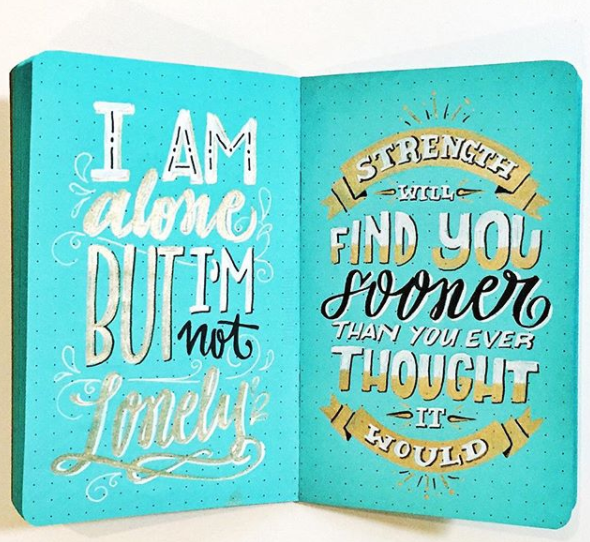 I AM
alone
BUT I'M
not
Lonely
STRENGTH
WILL
FIND YOU
sooner
THAN YOU EVER
THOUGHT
IT
WOULD